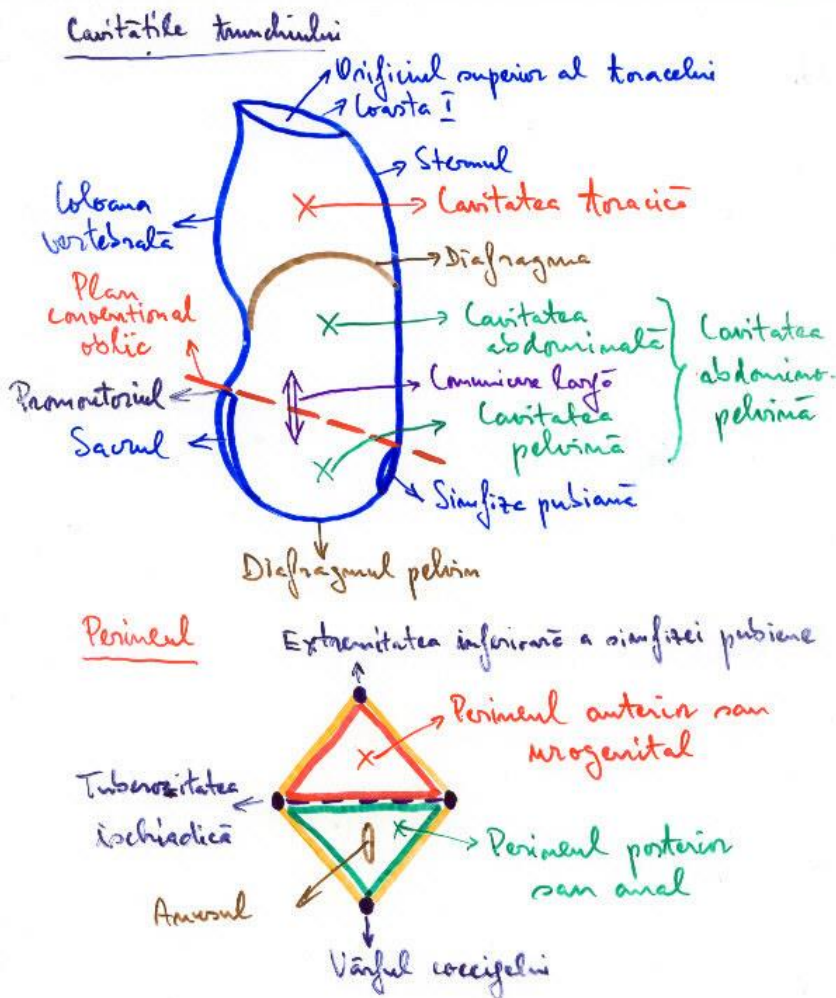 Cavitățile trunchiului
Orificiul superior al toracelui
Coasta I
Sternul
Cavitatea toracică
Coloana
vertebrală
Diafragma
Plan
convențional
oblic
Cavitatea
abdominală
Cavitatea
abdomino-
pelvină
Comunicare largă
Promontoriul
Cavitatea
pelvină
Sacrul
Simfiza pubiană
Diafragmul pelvin
Perineul
Extremitatea inferioară a simfizei pubiene
Perineul anterior sau
urogenital
Tuberozitatea
ischiadică
Perineul posterior
sau anal
Anusul
Vârful coccigelui